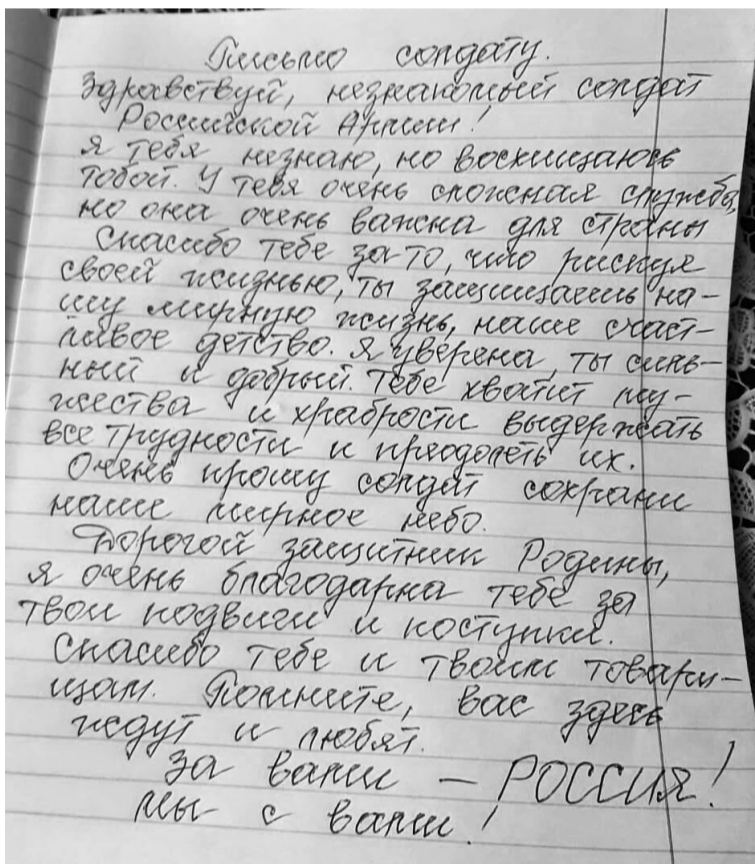 Письмо солдату.
Здравствуй, незнакомый солдат
Российской Армии!
Я тебя незнаю, но восхищаюсь
тобой. У тебя очень сложная служба,
но она очень важна для страны
Спасибо тебе за то, что рискуя
своей жизнью, ты защищаешь на-
шу мирную жизнь, наше счаст-
ливое детство. Я уверена, ты силь-
ный и добрый. Тебе хватит му-
жества и храбрости выдержать
все трудности и преодолеть их.
Очень прошу солдат сохрани
наше мирное небо.
Дорогой защитник Родины,
я очень благодарна тебе за
твои подвиги и поступки.
Спасибо тебе и твоим товари-
щам. Помните, вас здесь
ждут и любят.
За вами – РОССИЯ!
Мы с вами!